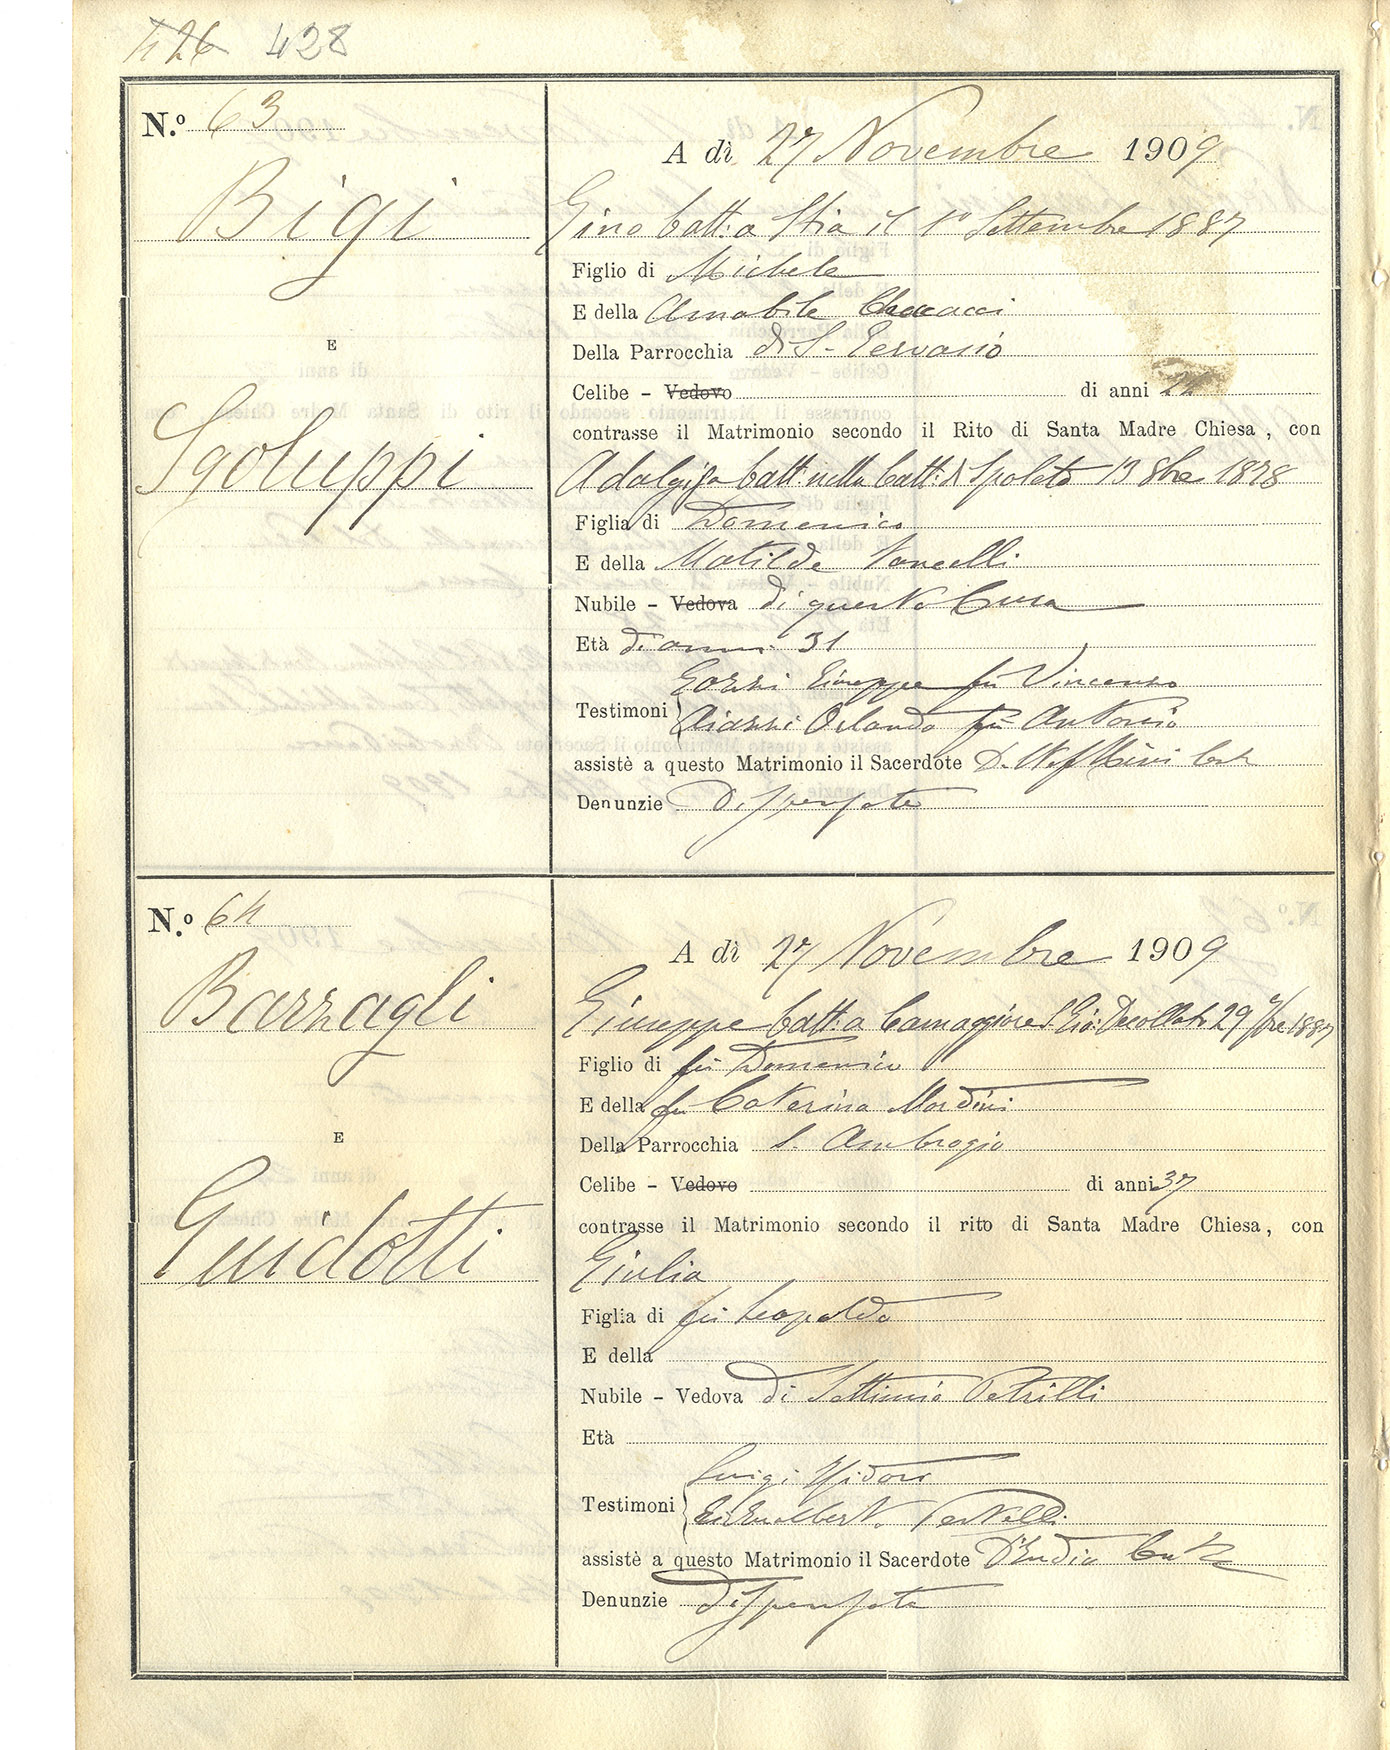 426 428
N.º 63
A dì 27 Novembre 1909
Bigi
Gino batt: a Stia il 1º Settembre 1887
Figlio di Michele
E della Amabile
E
Della Parrocchia di S. Gervasio
Celibe - Vedovo di anni
contrasse il Matrimonio secondo il Rito di Santa Madre Chiesa, con
Sgoluppi
Adalgisa batt: nella batt: di Spoleto 13 8bre 1878
Figlia di Domenico
E della Matilde Vancelli
Nubile - Vedova di questa Cura
Età di anni 31
Gozzi Giuseppe fu Vincenzo
Testimoni Orlando fu Antonio
assistè a questo Matrimonio il Sacerdote D.
Denunzie Dispensate
N.º 64
A dì 27 Novembre 1909
Barzagli
Giuseppe batt: a Camaggiore S. Gio: Decollato 29 1887
Figlio di fu Domenico
E della fu Caterina Mordini
E
Della Parrocchia S. Ambrogio
Celibe - Vedovo di anni 37
contrasse il Matrimonio secondo il rito di Santa Madre Chiesa, con
Guidotti
Giulia
Figlia di fu Leopoldo
E della
Nubile - Vedova di Settimio Petrilli
Età
Luigi
Testimoni
assistè a questo Matrimonio il Sacerdote
Denunzie Dispensate